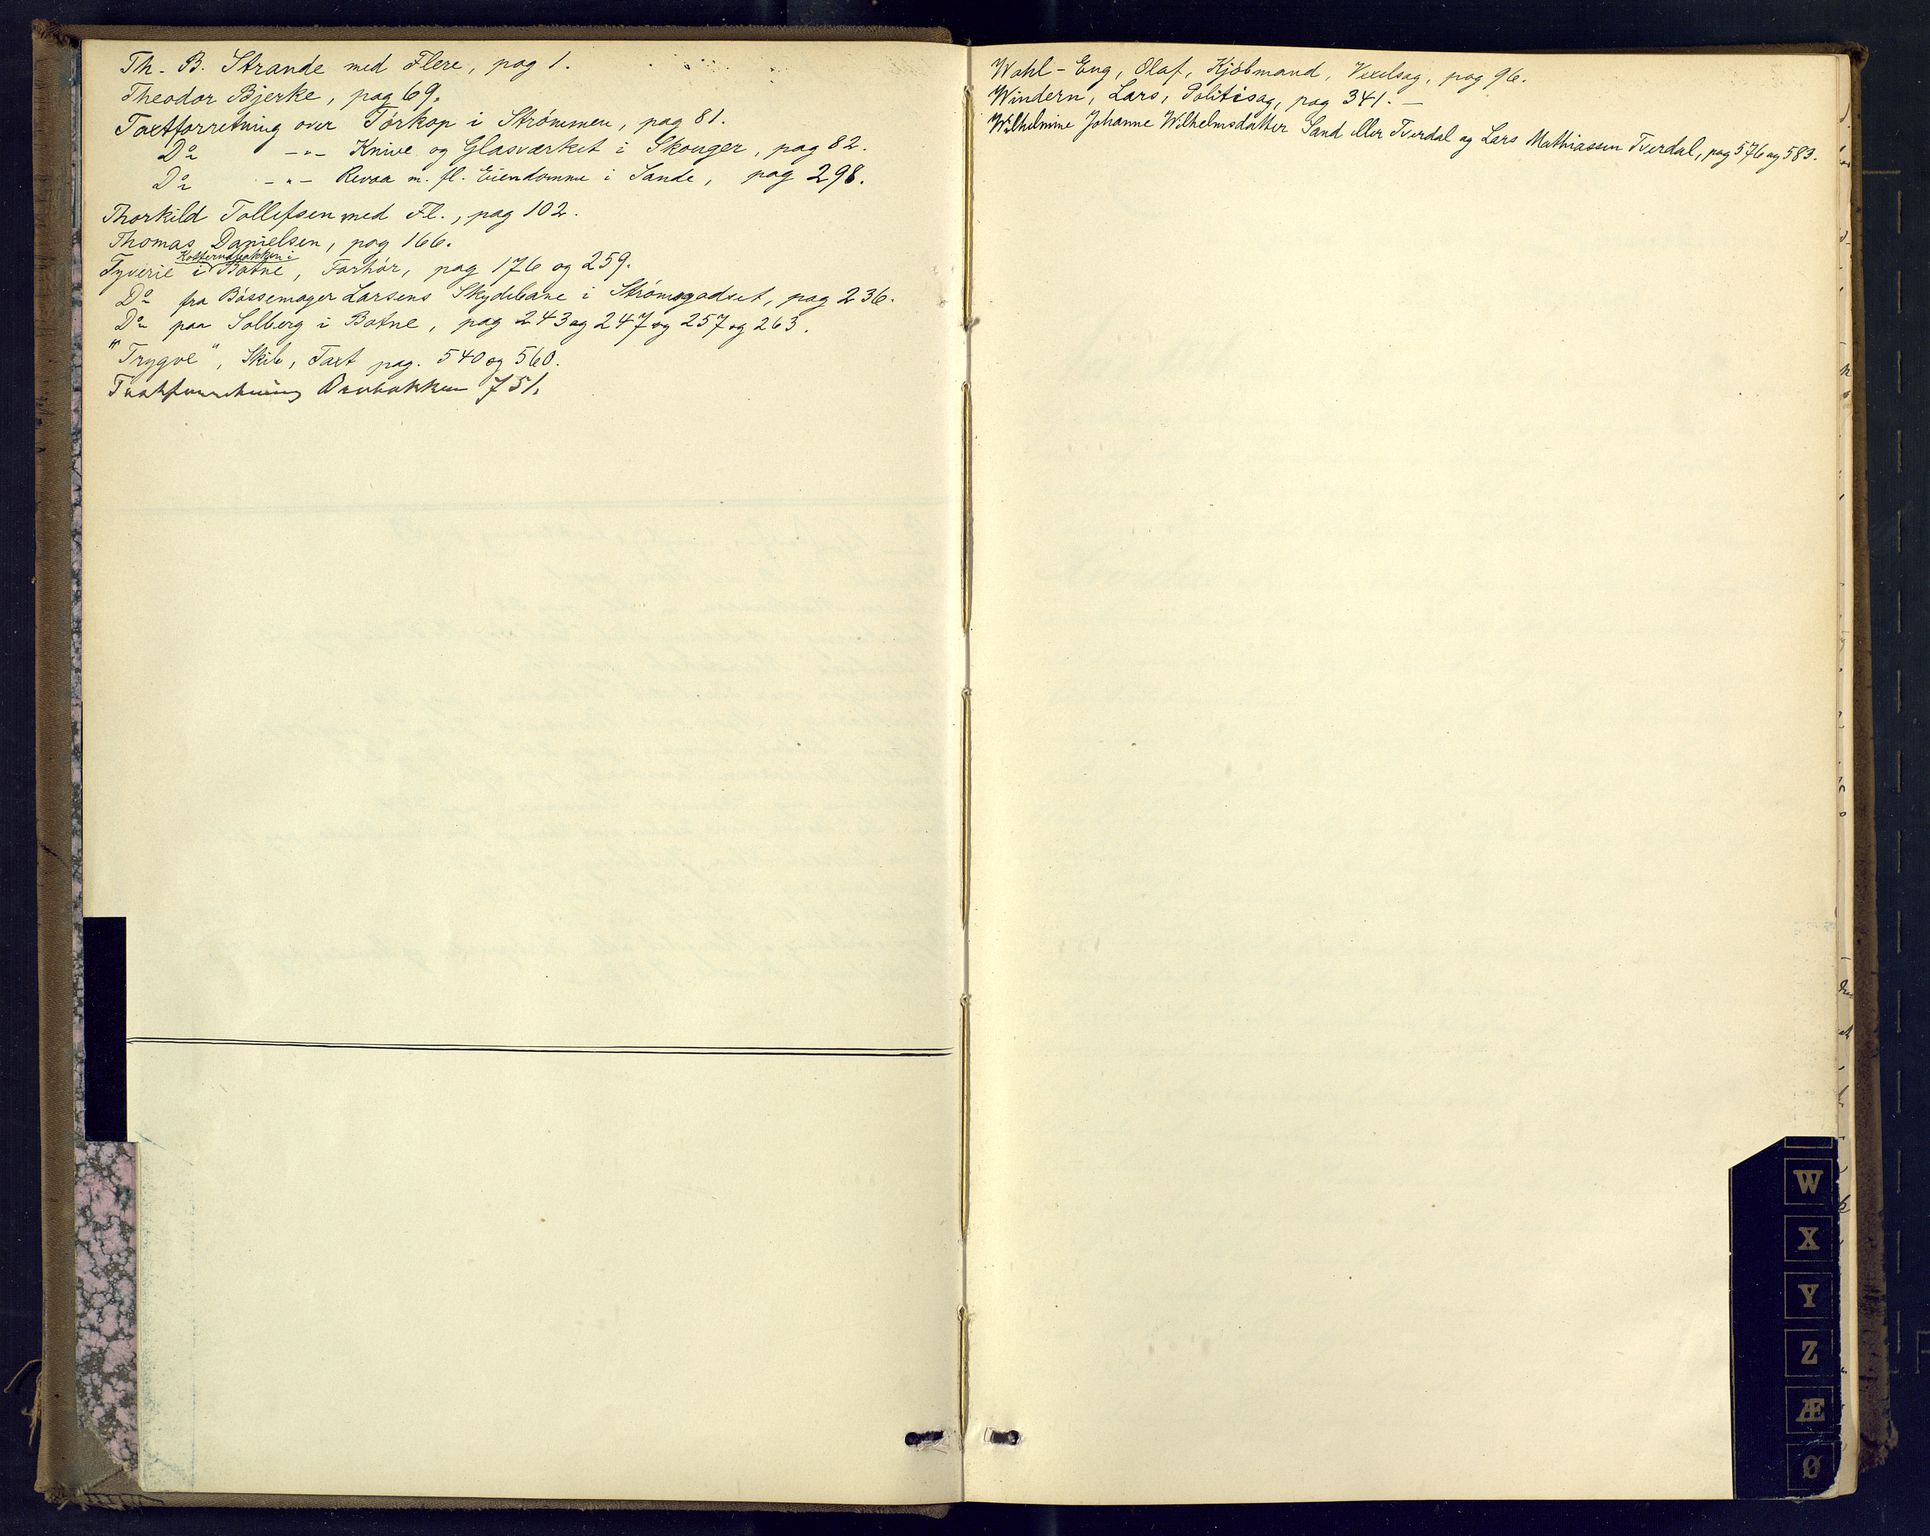 Th. B. Strande med Flere, pag 1.
Theodor Bjerke, pag 69.
Taxtforretning over Tørkop i Strømmen, pag 81.
Do -"- Knive og Glasværket i Skouger, pag 82.
Do -"- Revaa m. fl. Eiendomme i Sande, pag 298.
Thorkild Tollefsen med Fl., pag 102.
Thomas Danielsen, pag 166.
Tyverie i Botne, Forhør, pag 176 og 259.
Do fra Bøssemager Larsens Skydebane i Strømsgodset, pag 236.
Do paa Solberg i Botne, pag 243 og 247 og 257 og 263.
"Trygve", Skib, Taxt pag. 540 og 560.
751.
Wahl-Eng, Olaf, Kjøbmand, Vexelsag, pag 96.
Windern, Lars, Politisag, pag 341. —
Wilhelmine Johanne Wilhelmsdatter Sand eller Tverdal og Lars Mathiassen Tverdal, pag 576 og 583.
W
X
Y
Z
Æ
Ø